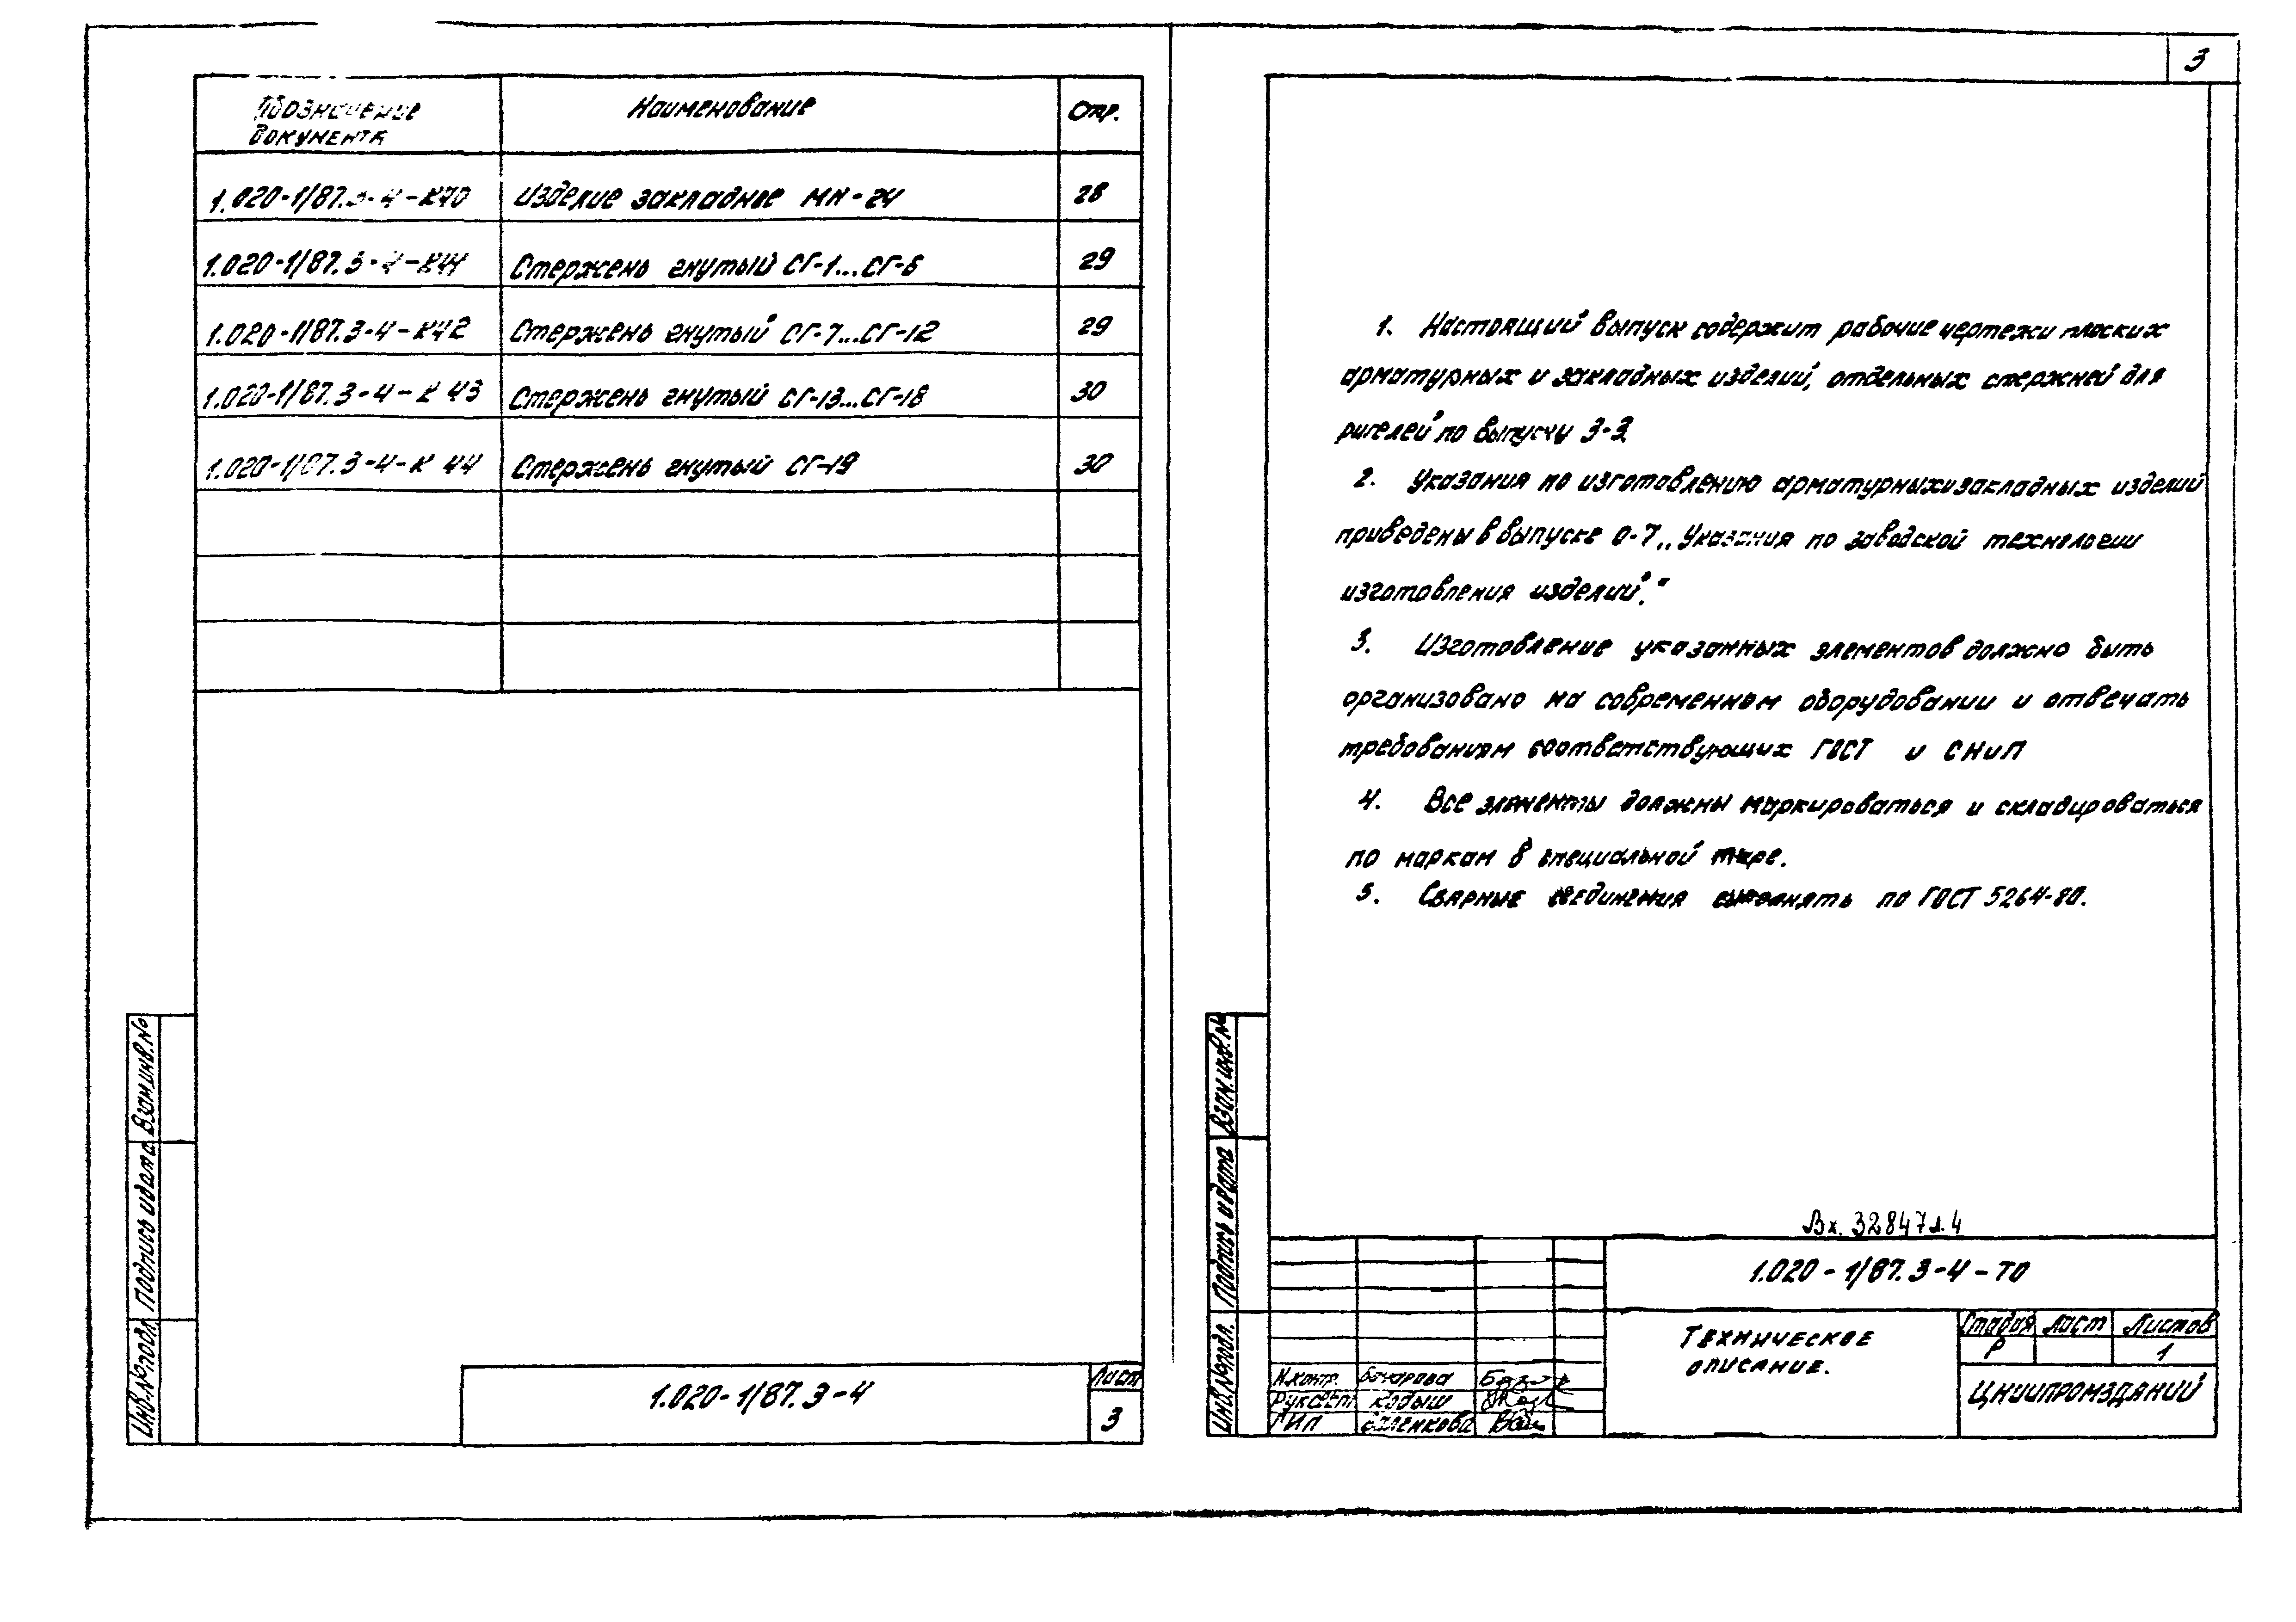 3
Обозначение Наименование Стр.
документа
1.020-1/87.3-4-К40 Изделие закладное МН-24 28
1.020-1/87.3-4-К41 Стержень гнутый СГ-1...СГ-6 29
1.020-1/87.3-4-К42 Стержень гнутый СГ-7...СГ-12 29
1.020-1/87.3-4-К 43 Стержень гнутый СГ-13...СГ-18 30
1.020-1/87.3-4-К 44 Стержень гнутый СГ-19 30
Взам.инв.№
Подпись и дата
Инв.№подл.
1.020-1/87.3-4
Лист
3
1. Настоящий выпуск содержит рабочие чертежи плоских
арматурных и закладных изделий, отдельных стержней для
ригелей по выпуску 3-3
2. Указания по изготовлению арматурных и закладных изделий
приведены в выпуске 0-7 „Указания по заводской технологии
изготовления изделий."
3. Изготовление указанных элементов должно быть
организовано на современном оборудовании и отвечать
требованиям соответствующих ГОСТ и СНиП
4. Все элементы должны маркироваться и складироваться
по маркам в специальной таре.
5. Сварные соединения выполнять по ГОСТ 5264-80.
Взам.инв.№
Подпись и дата
Инв.№подл.
Вх. 32847 л.4
1.020-1/87.3-4-ТО
Техническое
описание.
Стадия Лист Листов
Р 1
ЦНИИПРОМЗДАНИЙ
Н.контр. Бочарова
Кодыш
ГИП